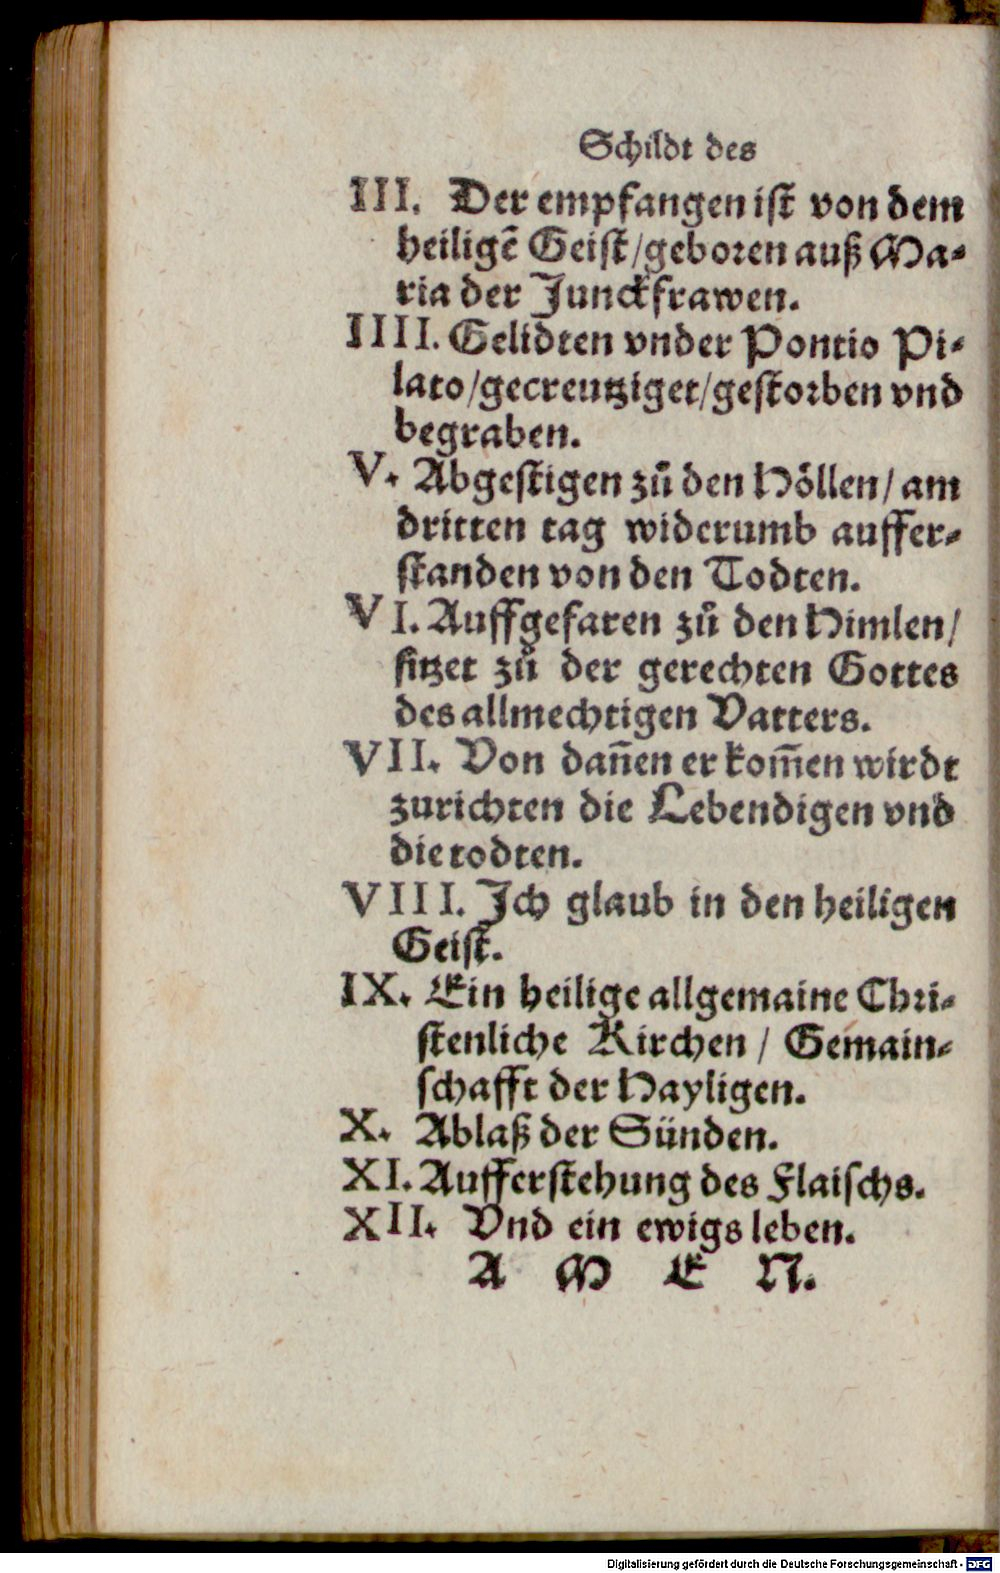 Schildt des
III. Der empfangen ist von dem
heiligẽ Geist/geboren auß Ma-
ria der Junckfrawen.
IIII. Gelidten vnder Pontio Pi-
lato/gecreutziget/gestorben vnd
begraben.
V. Abgestigen zů den Höllen/ am
dritten tag widerumb auffer-
standen von den Todten.
VI. Auffgefaren zů den Himlen/
sitzet zů der gerechten Gottes
des allmechtigen Vatters.
VII. Von dañen er kom̃en wirdt
zurichten die Lebendigen vnd
die todten.
VIII. Ich glaub in den heiligen
Geist.
IX. Ein heilige allgemaine Chri-
stenliche Kirchen / Gemain-
schafft der Hayligen.
X. Ablaß der Sünden.
XI. Aufferstehung des Flaischs.
XII. Vnd ein ewigs leben.
A M E N.
Digitalisierung gefördert durch die Deutsche Forschungsgemeinschaft - DFG